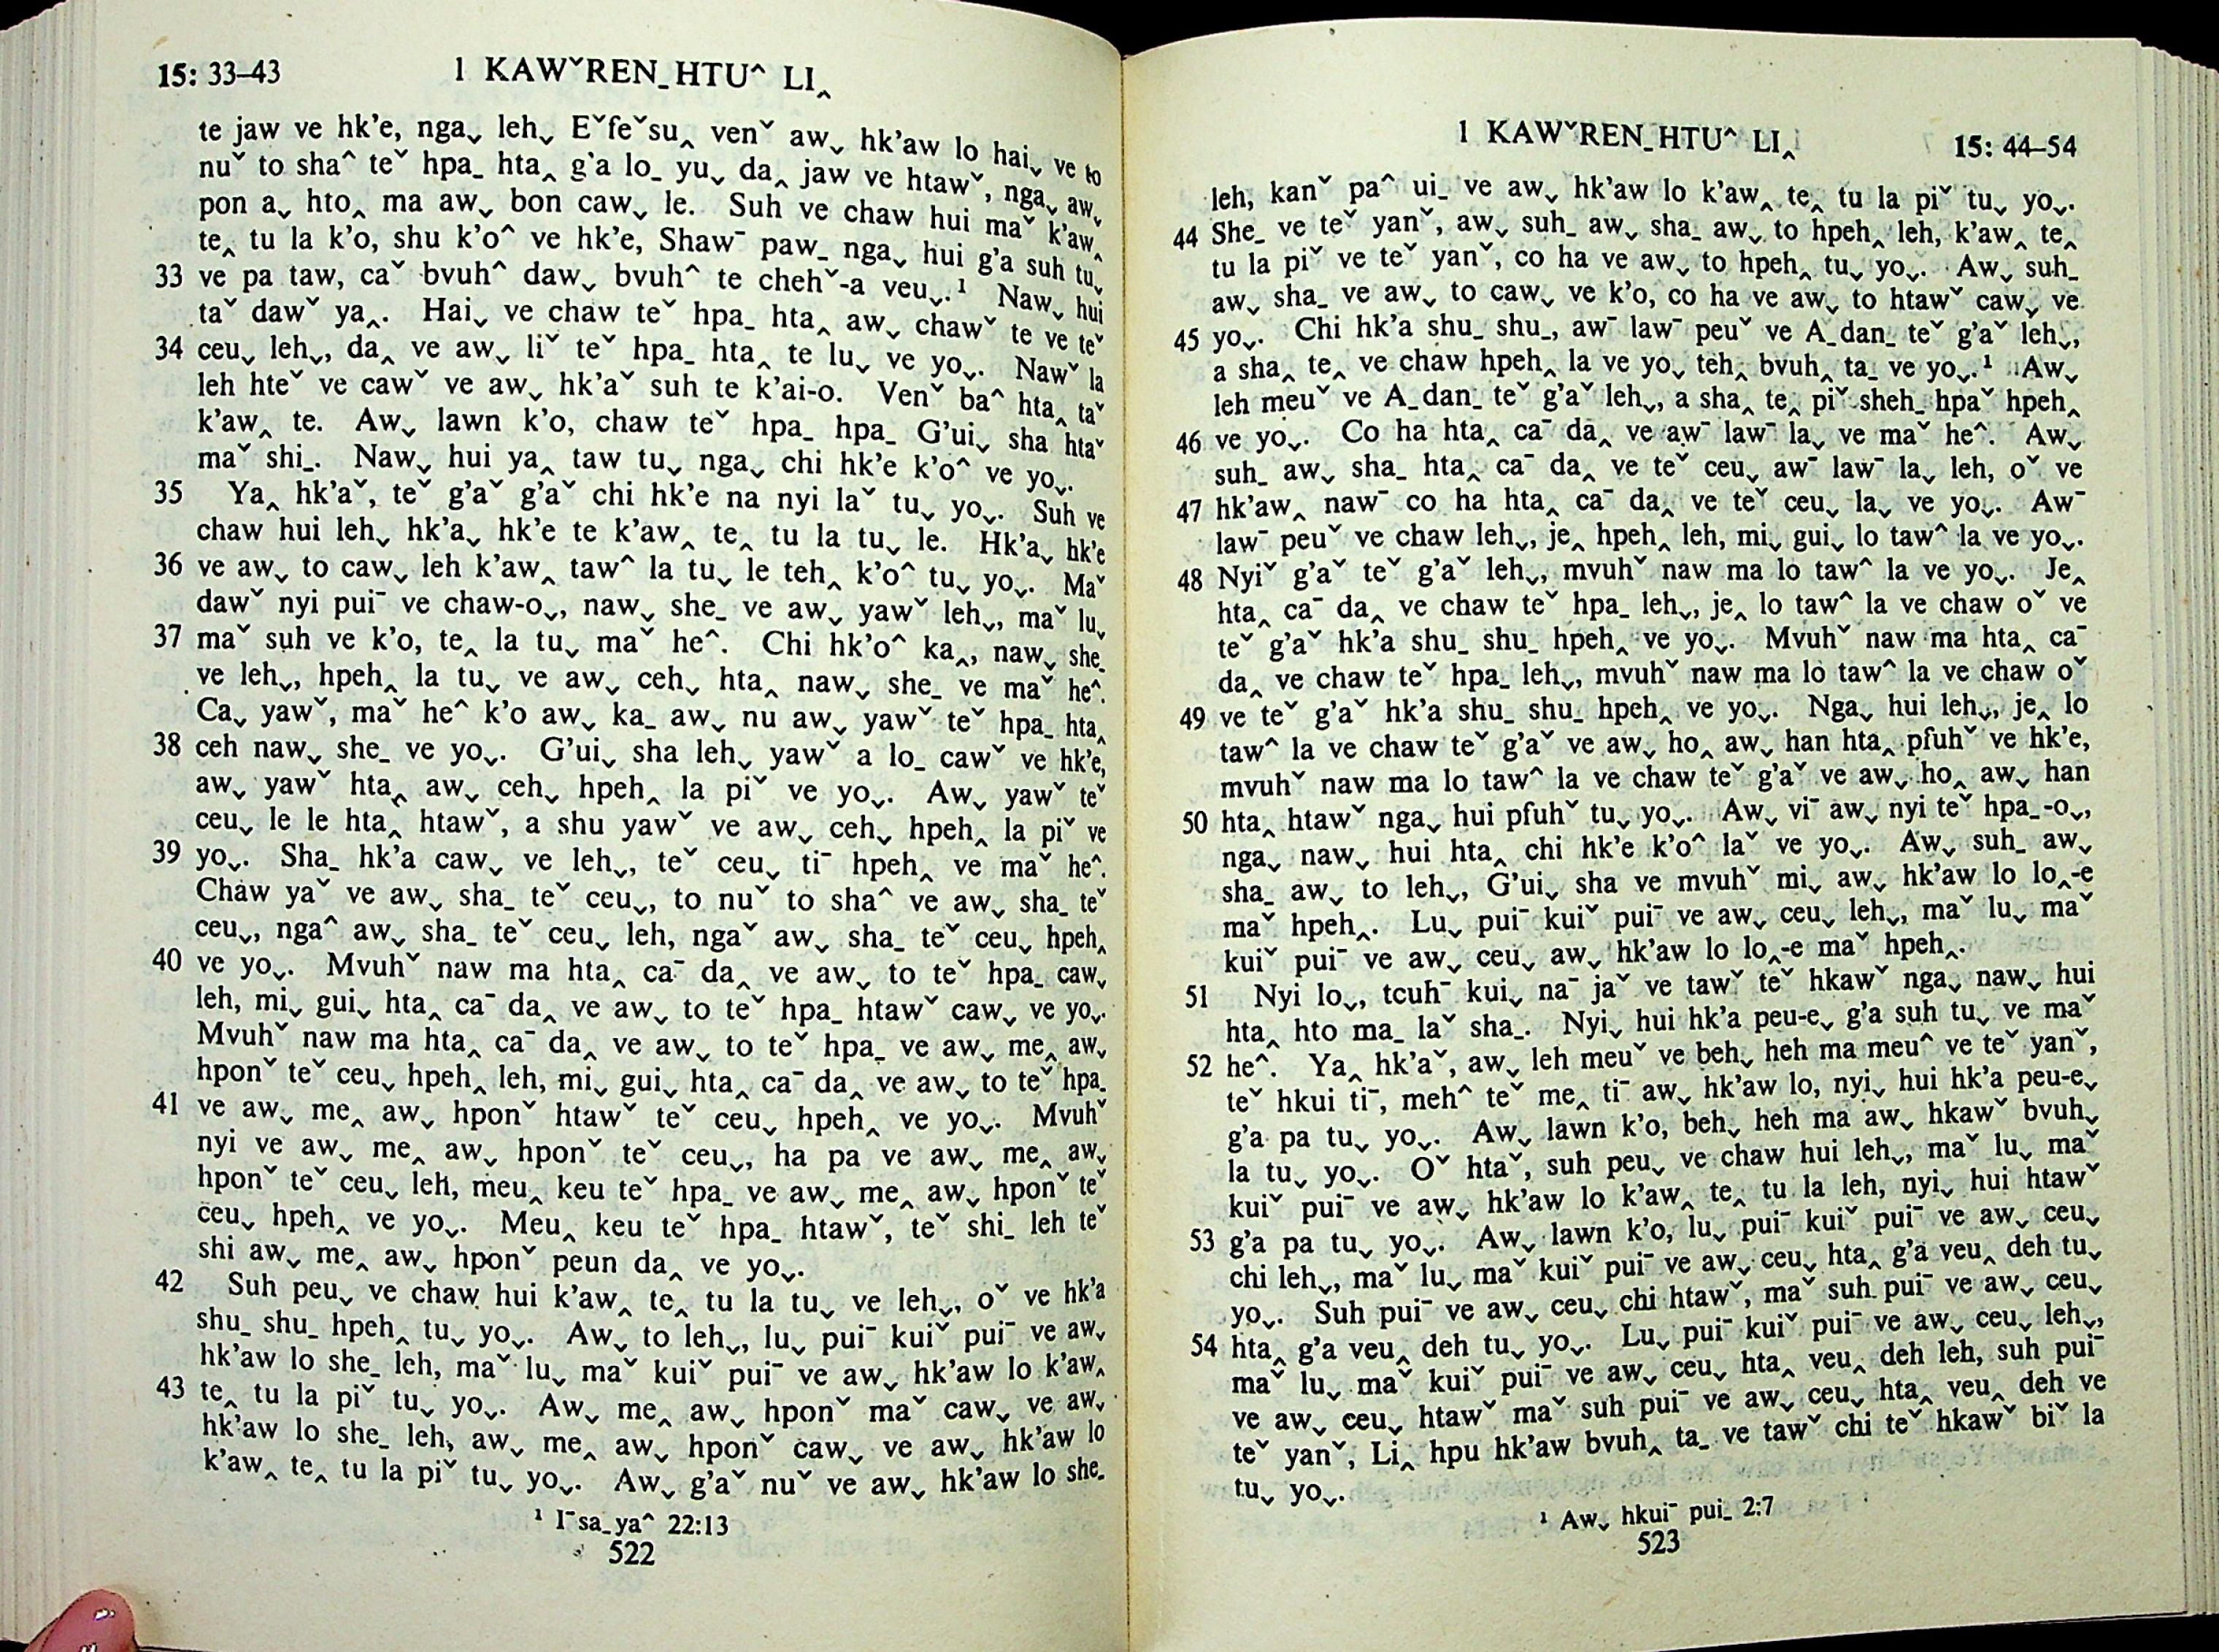 15: 33–43
1 KAWˇREN_HTU^ LI‸
te jaw ve hk’e, ngaˬ lehˬ Eˇfeˇsu‸ venˇ awˬ hk’aw lo haiˬ ve to
nuˇ to sha^ teˇ hpa_ hta‸ g’a lo_ yuˬ da‸ jaw ve htawˇ, ngaˬ awˬ
pon aˬ hto‸ ma awˬ bon cawˬ le. Suh ve chaw hui maˇ k’aw‸
te‸ tu la k’o, shu k’o^ ve hk’e, Shaw¯ paw_ ngaˬ hui g’a suh tuˬ
33 ve pa taw, caˇ bvuh^ dawˬ bvuh^ te chehˇ-a veuˬ.¹ Nawˬ hui
taˇ dawˇ ya‸. Haiˬ ve chaw teˇ hpa_ hta‸ awˬ chawˇ te ve teˇ
34 ceuˬ lehˬ, da‸ ve awˬ liˇ teˇ hpa_ hta‸ te luˬ ve yoˬ. Nawˇ la
leh hteˇ ve cawˇ ve awˬ hk’aˇ suh te k’ai-o. Venˇ ba^ hta‸ taˇ
k’aw‸ te. Awˬ lawn k’o, chaw teˇ hpa_ hpa_ G’uiˬ sha htaˇ
maˇ shi_. Nawˬ hui ya‸ taw tuˬ ngaˬ chi hk’e k’o^ ve yoˬ.
35 Ya‸ hk’aˇ, teˇ g’aˇ g’aˇ chi hk’e na nyi laˇ tuˬ yoˬ. Suh ve
chaw hui lehˬ hk’aˬ hk’e te k’aw‸ te‸ tu la tuˬ le. Hk’aˬ hk’e
36 ve awˬ to cawˬ leh k’aw‸ taw^ la tuˬ le teh‸ k’o^ tuˬ yoˬ. Maˇ
dawˇ nyi pui¯ ve chaw-oˬ, nawˬ she_ ve awˬ yawˇ lehˬ, maˇ luˬ
37 maˇ suh ve k’o, te‸ la tuˬ maˇ he^. Chi hk’o^ ka‸, nawˬ she_
ve lehˬ, hpeh‸ la tuˬ ve awˬ cehˬ hta‸ nawˬ she_ ve maˇ he^.
Caˬ yawˇ, maˇ he^ k’o awˬ ka_ awˬ nu awˬ yawˇ teˇ hpa_ hta‸
38 ceh nawˬ she_ ve yoˬ. G’uiˬ sha lehˬ yawˇ a lo_ cawˇ ve hk’e,
awˬ yawˇ hta‸ awˬ cehˬ hpeh‸ la piˇ ve yoˬ. Awˬ yawˇ teˇ
ceuˬ le le hta‸ htawˇ, a shu yawˇ ve awˬ cehˬ hpeh‸ la piˇ ve
39 yoˬ. Sha_ hk’a cawˬ ve lehˬ, teˇ ceuˬ ti¯ hpeh‸ ve maˇ he^.
Chaw yaˇ ve awˬ sha_ teˇ ceuˬ, to nuˇ to sha^ ve awˬ sha_ teˇ
ceuˬ, nga^ awˬ sha_ teˇ ceuˬ leh, ngaˇ awˬ sha_ teˇ ceuˬ hpeh‸
40 ve yoˬ. Mvuhˇ naw ma hta‸ ca¯ da‸ ve awˬ to teˇ hpa_ cawˬ
leh, miˬ guiˬ hta‸ ca¯ da‸ ve awˬ to teˇ hpa_ htawˇ cawˬ ve yoˬ.
Mvuhˇ naw ma hta‸ ca¯ da‸ ve awˬ to teˇ hpa_ ve awˬ me‸ awˬ
hponˇ teˇ ceuˬ hpeh‸ leh, miˬ guiˬ hta‸ ca¯ da‸ ve awˬ to teˇ hpa_
41 ve awˬ me‸ awˬ hponˇ htawˇ teˇ ceuˬ hpeh‸ ve yoˬ. Mvuhˇ
nyi ve awˬ me‸ awˬ hponˇ teˇ ceuˬ, ha pa ve awˬ me‸ awˬ
hponˇ teˇ ceuˬ leh, meu‸ keu teˇ hpa_ ve awˬ me‸ awˬ hponˇ teˇ
ceuˬ hpeh‸ ve yoˬ. Meu‸ keu teˇ hpa_ htawˇ, teˇ shi_ leh teˇ
shi awˬ me‸ awˬ hponˇ peun da‸ ve yoˬ.
42 Suh peuˬ ve chaw hui k’aw‸ te‸ tu la tuˬ ve lehˬ, oˇ ve hk’a
shu_ shu_ hpeh‸ tuˬ yoˬ. Awˬ to lehˬ, luˬ pui¯ kuiˇ pui¯ ve awˬ
hk’aw lo she_ leh, maˇ luˬ maˇ kuiˇ pui¯ ve awˬ hk’aw lo k’aw‸
43 te‸ tu la piˇ tuˬ yoˬ. Awˬ me‸ awˬ hponˇ maˇ cawˬ ve awˬ
hk’aw lo she_ leh, awˬ me‸ awˬ hponˇ cawˬ ve awˬ hk’aw lo
k’aw‸ te‸ tu la piˇ tuˬ yoˬ. Awˬ g’aˇ nuˇ ve awˬ hk’aw lo she_
¹ I¯sa_ya^ 22:13
522
1 KAWˇREN_HTU^ LI‸
15: 44–54
leh, kanˇ pa^ ui_ ve awˬ hk’aw lo k’aw‸ te‸ tu la piˇ tuˬ yoˬ.
44 She_ ve teˇ yanˇ, awˬ suh_ awˬ sha_ awˬ to hpeh‸ leh, k’aw‸ te‸
tu la piˇ ve teˇ yanˇ, co ha ve awˬ to hpeh‸ tuˬ yoˬ. Awˬ suh_
awˬ sha_ ve awˬ to cawˬ ve k’o, co ha ve awˬ to htawˇ cawˬ ve
45 yoˬ. Chi hk’a shu_ shu_, aw¯ law¯ peuˇ ve A_dan_ teˇ g’aˇ lehˬ,
a sha‸ te‸ ve chaw hpeh‸ la ve yoˬ teh‸ bvuh‸ ta_ ve yoˬ.¹ Awˬ
leh meuˇ ve A_dan_ teˇ g’aˇ lehˬ, a sha‸ te‸ piˇ sheh_ hpaˇ hpeh‸
46 ve yoˬ. Co ha hta‸ ca¯ da‸ ve aw¯ law¯ laˬ ve maˇ he^. Awˬ
suh_ awˬ sha_ hta‸ ca¯ da‸ ve teˇ ceuˬ aw¯ law¯ laˬ leh, oˇ ve
47 hk’aw‸ naw¯ co ha hta‸ ca¯ da‸ ve teˇ ceuˬ laˬ ve yoˬ. Aw¯
law¯ peuˇ ve chaw lehˬ, je‸ hpeh‸ leh, miˬ guiˬ lo taw^ la ve yoˬ.
48 Nyiˇ g’aˇ teˇ g’aˇ lehˬ, mvuhˇ naw ma lo taw^ la ve yoˬ. Je‸
hta‸ ca¯ da‸ ve chaw teˇ hpa_ lehˬ, je‸ lo taw^ la ve chaw oˇ ve
teˇ g’aˇ hk’a shu_ shu_ hpeh‸ ve yoˬ. Mvuhˇ naw ma hta‸ ca¯
da‸ ve chaw teˇ hpa_ lehˬ, mvuhˇ naw ma lo taw^ la ve chaw oˇ
49 ve teˇ g’aˇ hk’a shu_ shu_ hpeh‸ ve yoˬ. Ngaˬ hui lehˬ, je‸ lo
taw^ la ve chaw teˇ g’aˇ ve awˬ ho‸ awˬ han hta‸ pfuhˇ ve hk’e,
mvuhˇ naw ma lo taw^ la ve chaw teˇ g’aˇ ve awˬ ho‸ awˬ han
50 hta‸ htawˇ ngaˬ hui pfuhˇ tuˬ yoˬ. Awˬ vi¯ awˬ nyi teˇ hpa_-oˬ,
ngaˬ nawˬ hui hta‸ chi hk’e k’o^ laˇ ve yoˬ. Awˬ suh_ awˬ
sha_ awˬ to lehˬ, G’uiˬ sha ve mvuhˇ miˬ awˬ hk’aw lo lo‸-e
maˇ hpeh‸. Luˬ pui¯ kuiˇ pui¯ ve awˬ ceuˬ lehˬ, maˇ luˬ maˇ
kuiˇ pui¯ ve awˬ ceuˬ awˬ hk’aw lo lo‸-e maˇ hpeh‸.
51 Nyi loˬ, tcuh¯ kuiˬ na¯ jaˇ ve tawˇ teˇ hkawˇ ngaˬ nawˬ hui
hta‸ hto ma_ laˇ sha_. Nyiˬ hui hk’a peu-eˬ g’a suh tuˬ ve maˇ
52 he^. Ya‸ hk’aˇ, awˬ leh meuˇ ve behˬ heh ma meu^ ve teˇ yanˇ,
teˇ hkui ti¯, meh^ teˇ me‸ ti¯ awˬ hk’aw lo, nyiˬ hui hk’a peu-eˬ
g’a pa tuˬ yoˬ. Awˬ lawn k’o, behˬ heh ma awˬ hkawˇ bvuhˬ
la tuˬ yoˬ. Oˇ htaˇ, suh peuˬ ve chaw hui lehˬ, maˇ luˬ maˇ
kuiˇ pui¯ ve awˬ hk’aw lo k’aw‸ te‸ tu la leh, nyiˬ hui htawˇ
53 g’a pa tuˬ yoˬ. Awˬ lawn k’o, luˬ pui¯ kuiˇ pui¯ ve awˬ ceuˬ
chi lehˬ, maˇ luˬ maˇ kuiˇ pui¯ ve awˬ ceuˬ hta‸ g’a veu‸ deh tuˬ
yoˬ. Suh pui¯ ve awˬ ceuˬ chi htawˇ, maˇ suh pui¯ ve awˬ ceuˬ
54 hta‸ g’a veu‸ deh tuˬ yoˬ. Luˬ pui¯ kuiˇ pui¯ ve awˬ ceuˬ lehˬ,
maˇ luˬ maˇ kuiˇ pui¯ ve awˬ ceuˬ hta‸ veu‸ deh leh, suh pui¯
ve awˬ ceuˬ htawˇ maˇ suh pui¯ ve awˬ ceuˬ hta‸ veu‸ deh ve
teˇ yanˇ, Li‸ hpu hk’aw bvuh‸ ta_ ve tawˇ chi teˇ hkawˇ biˇ la
tuˬ yoˬ.
¹ Awˬ hkui¯ pui_ 2:7
523